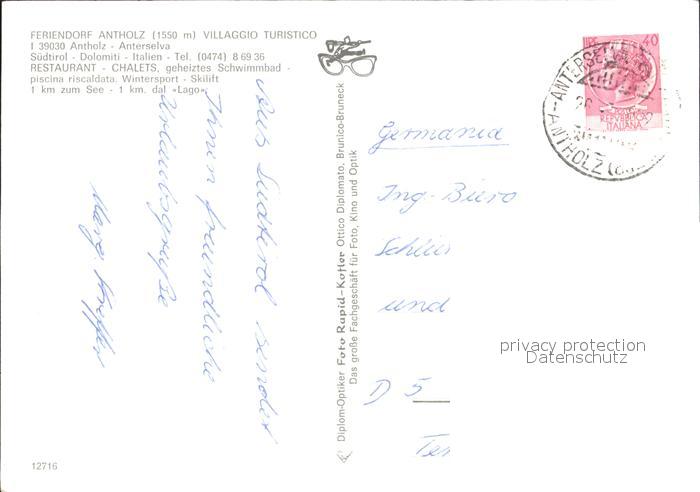 FERIENDORF ANTHOLZ (1550 m) VILLAGGIO TURISTICO
I 39030 Antholz - Anterselva
Südtirol - Dolomiti - Italien - Tel. (0474) 8 69 36
RESTAURANT - CHALETS, geheiztes Schwimmbad -
piscina riscaldata. Wintersport - Skilift
1 km zum See - 1 km. dal «Lago»
Aus Südtirol sendet
Ihnen freundliche
Urlaubsgrüße
12716
Diplom-Optiker Foto Rapid-Kofler Ottico Diplomato, Brunico-Bruneck
Das große Fachgeschäft für Foto, Kino und Optik
40
REPUBBLICA
ITALIANA
ANTHOLZ
Germania
Ing-Büro
und
D 5
privacy protection
Datenschutz